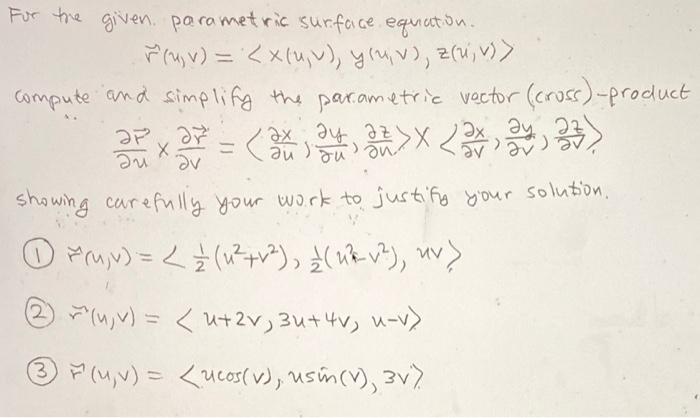 For the given parametric surface equation.
r⃗(u,v) = <x(u,v), y(u,v), z(u,v)>
compute and simplify the parametric vector (cross)-product
∂r⃗/∂u × ∂r⃗/∂v = <∂x/∂u, ∂y/∂u, ∂z/∂u> × <∂x/∂v, ∂y/∂v, ∂z/∂v>.
showing carefully your work to justify your solution.
① r⃗(u,v) = <½(u²+v²), ½(u²-v²), uv>.
② r⃗(u,v) = <u+2v, 3u+4v, u-v>
③ r⃗(u,v) = <ucos(v), usin(v), 3v>.